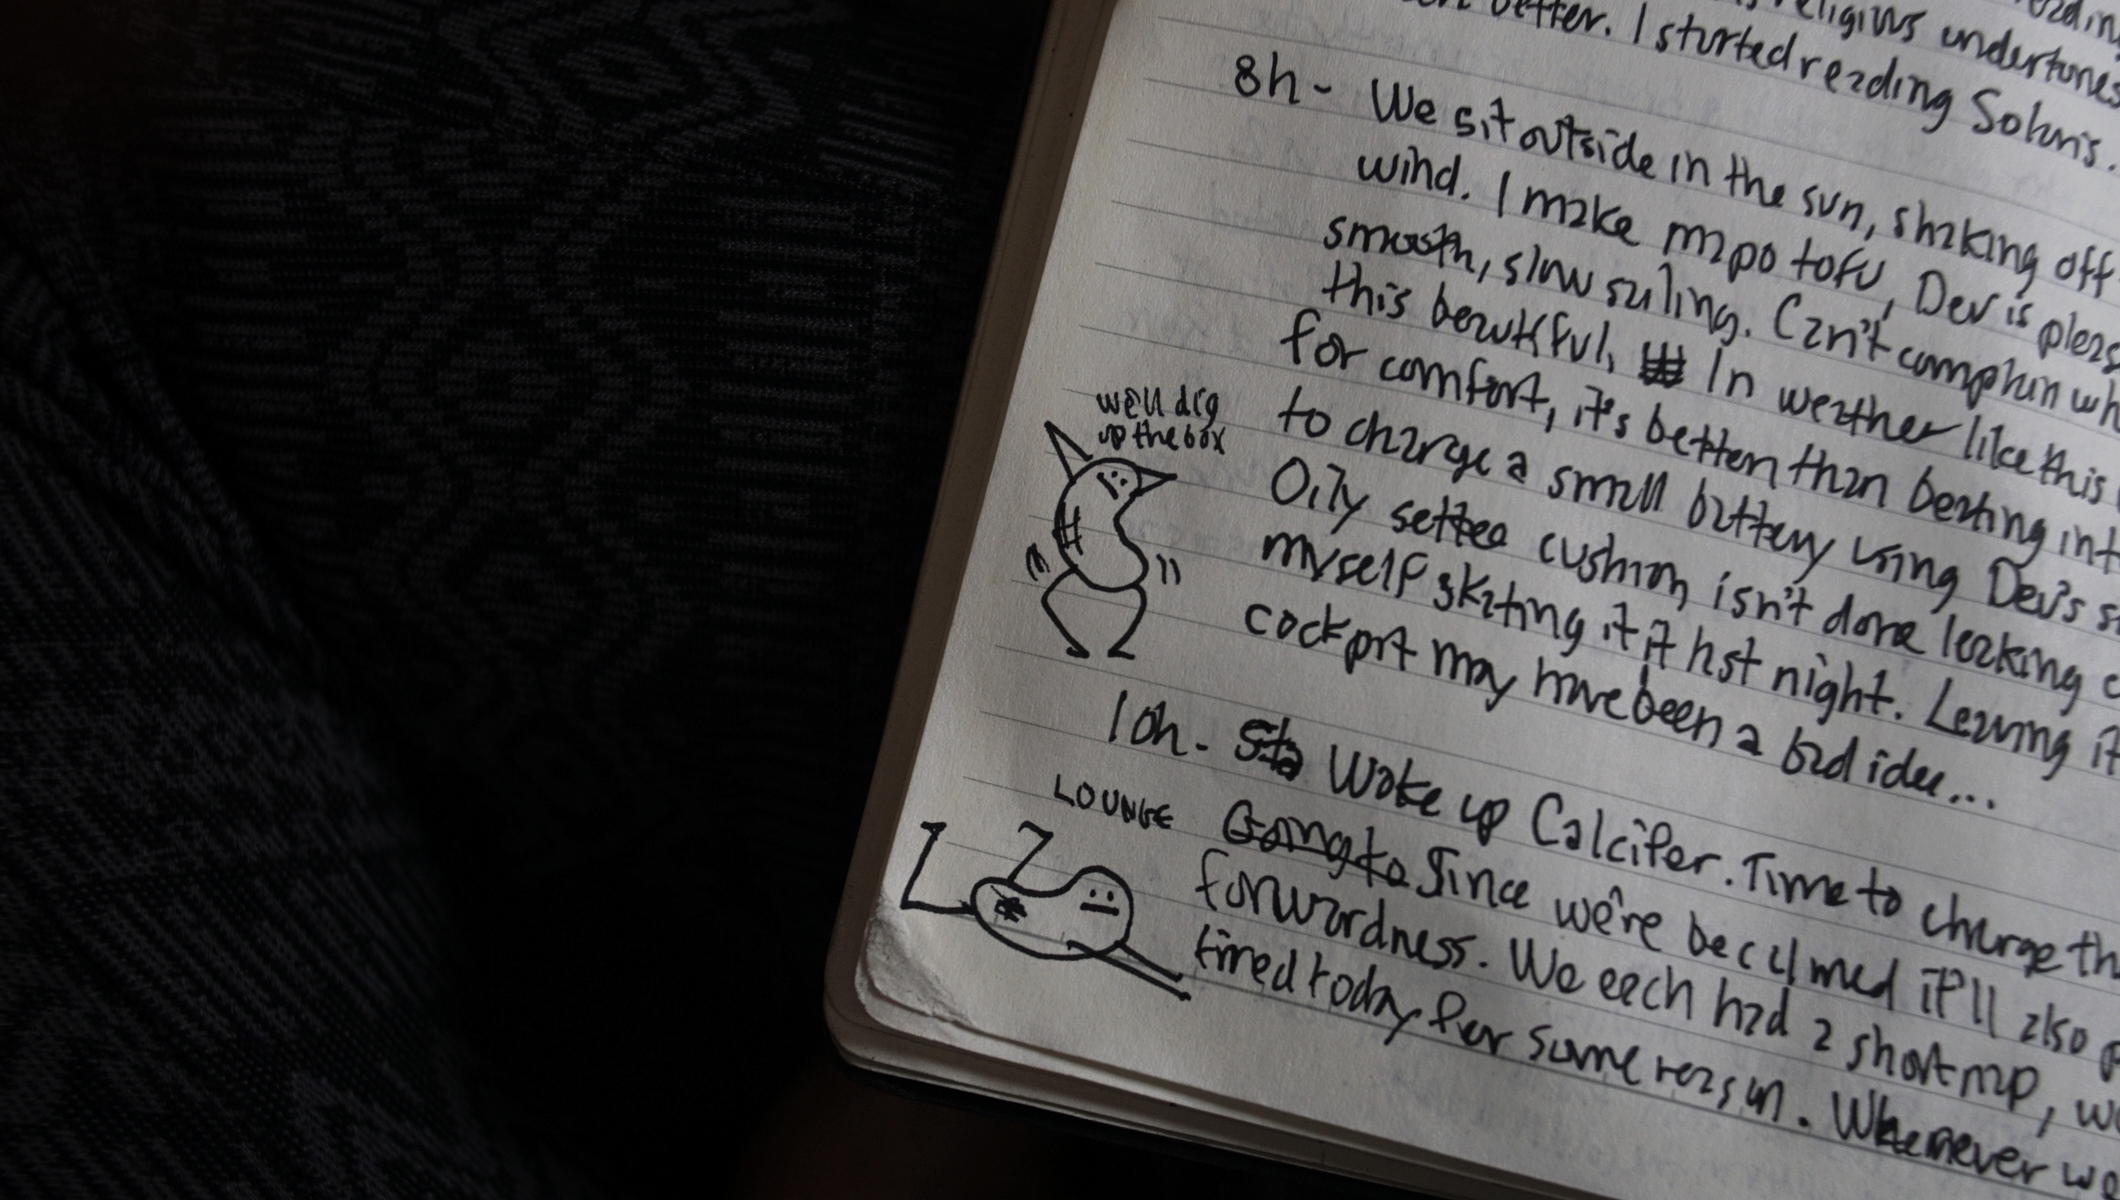 religius undertunes
better. I sturted reading Solaris.
8h - We sit outside in the sun, shaking off
wind. I make mapo tofu, Dev is pleas
smooth, slow sailing. Can't complain wh
this beautiful, In weather like this
for comfort, it's better than beating int
to charge a small battery using Dev's s
Oily settee cushion, isn't done leaking
myself skating it last night. Leaving it
cockpit may have been a bad idea...
we'll dig
up the box
10h - Sta Woke up Calcifer. Time to charge th
Going to Since we're becalmed it'll also
forwardness. We each had a short nap, we
tired today for some reason. Whenever we
LOUNGE